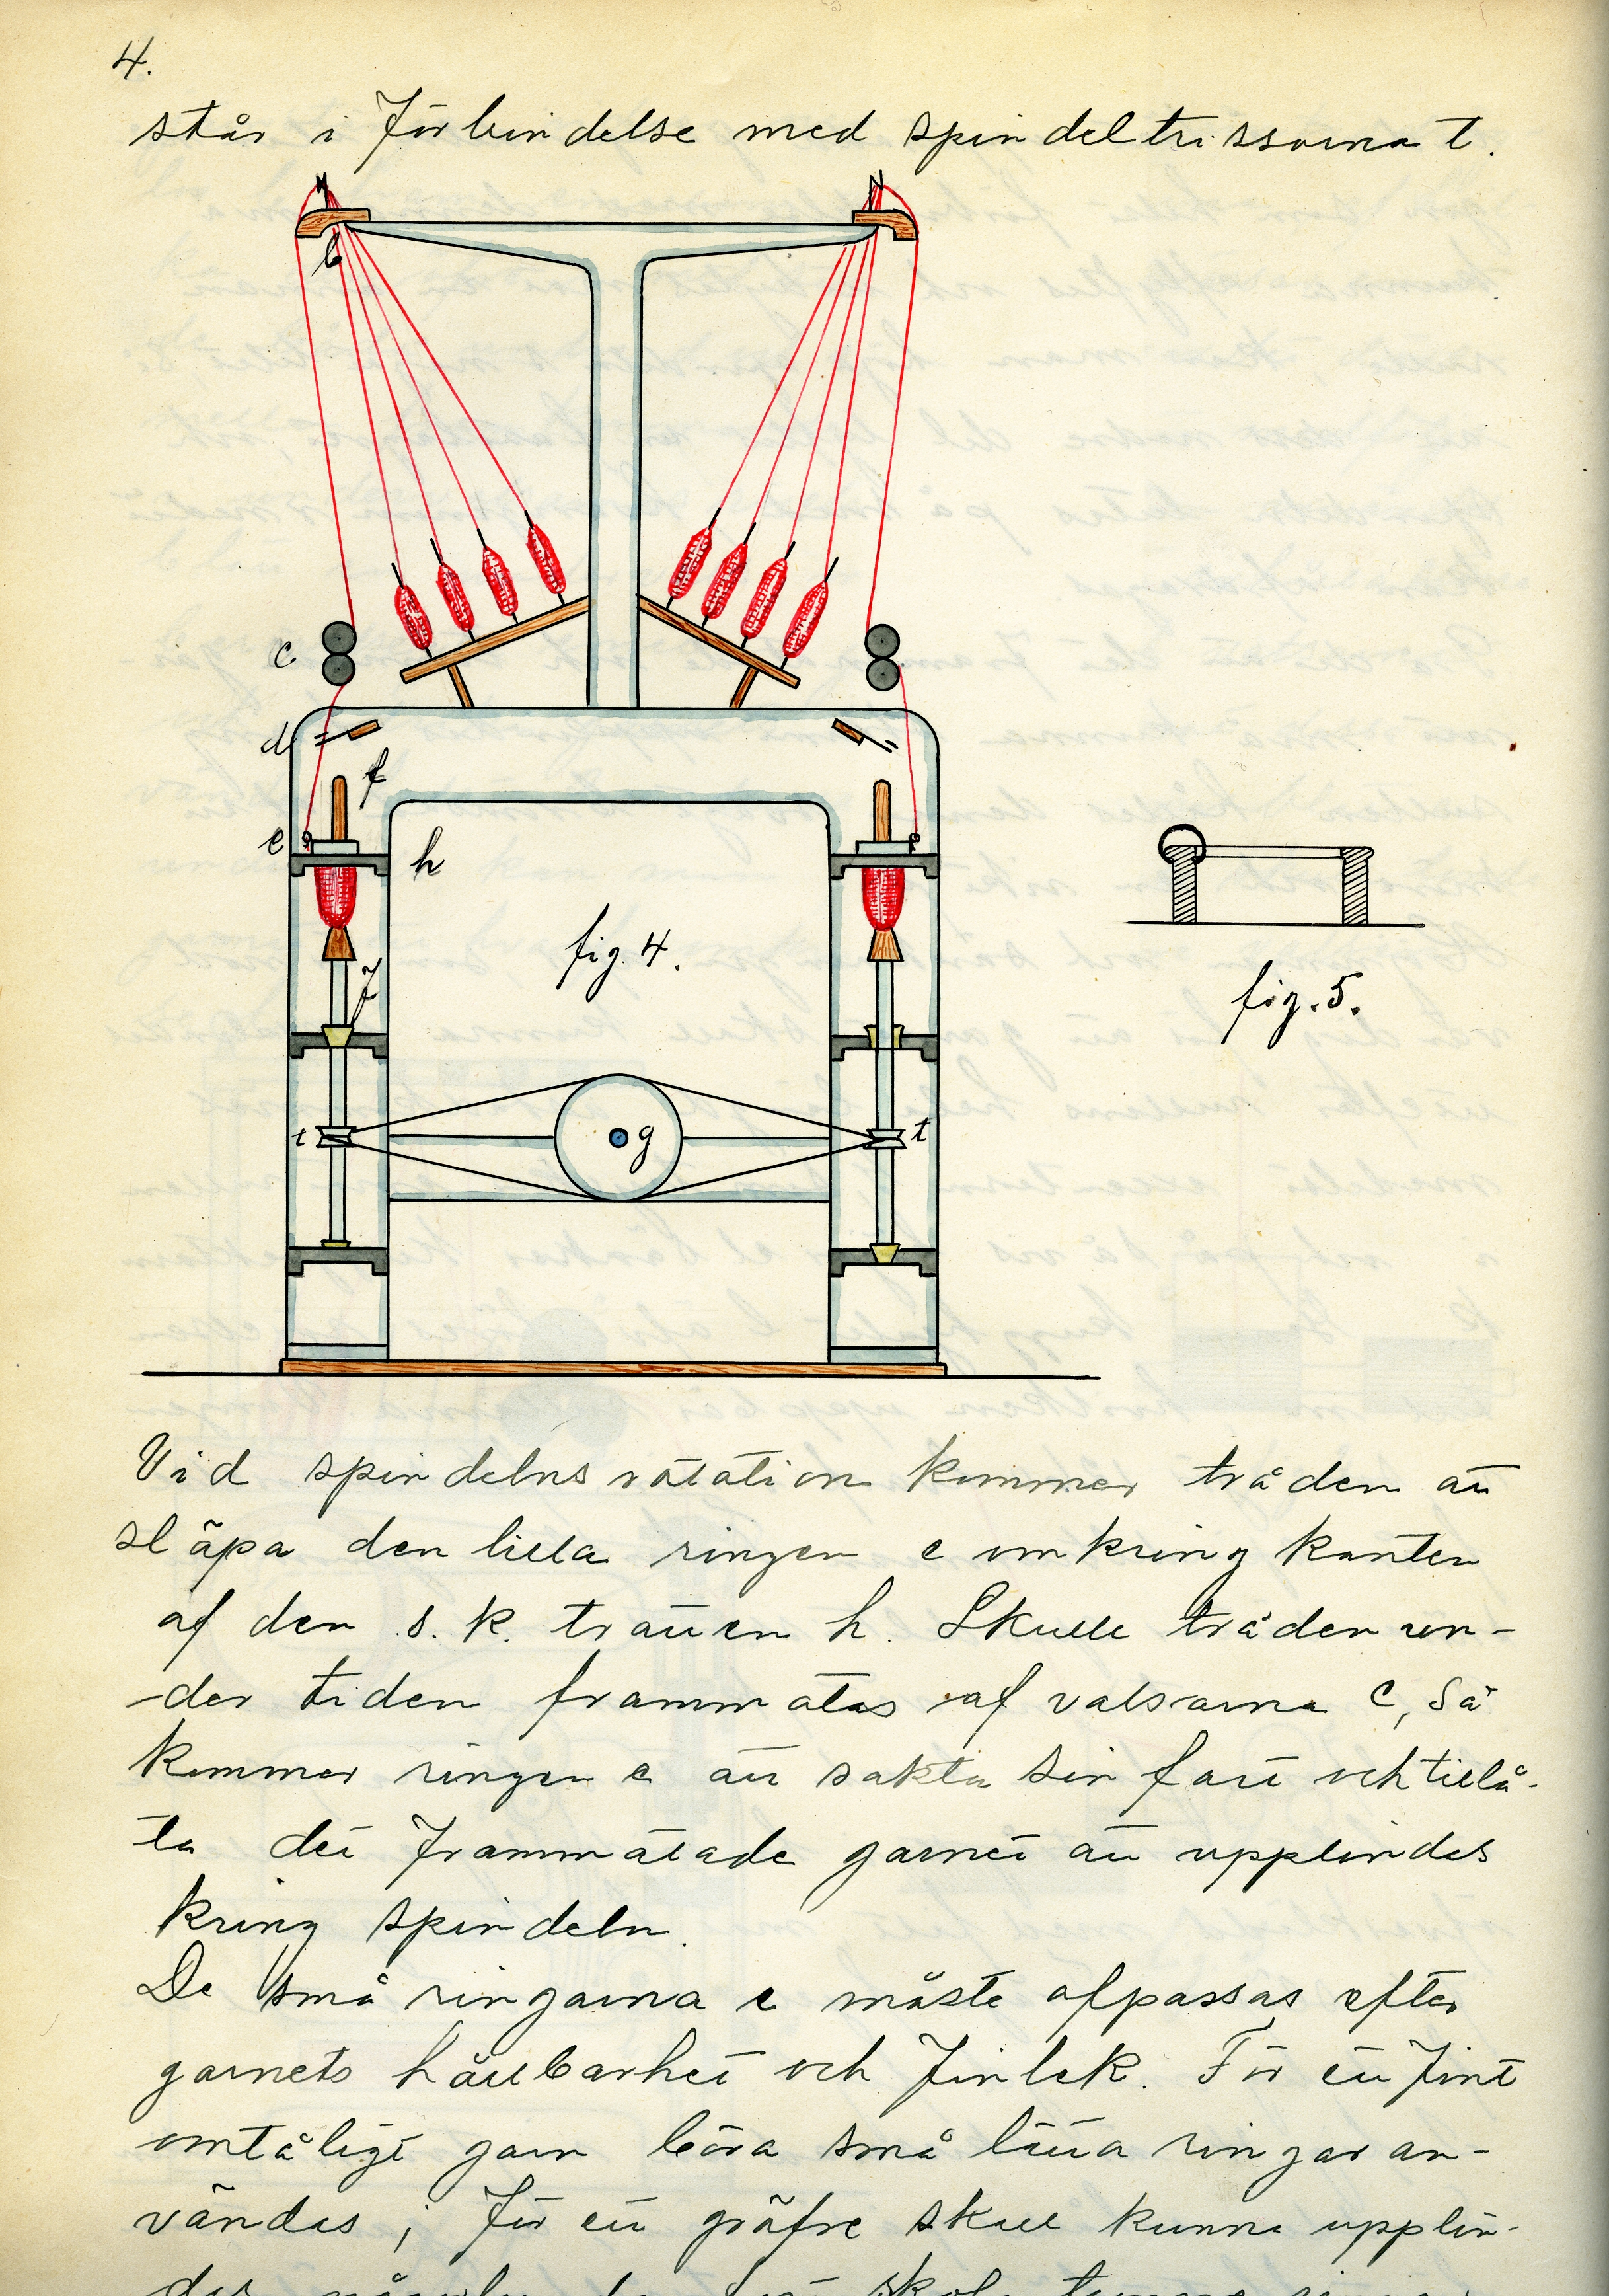 4.
står i förbindelse med spindeltrissorna t.
b
c
d
f
e
h
fig. 4.
f
fig. 5.
t
g
t
Vid spindelns rotation kommer tråden att
släpa den lilla ringen e omkring kanten
af den s. k. tratten h. Skulle tråden un-
-der tiden frammatas af valsarna c, så
kommer ringen e att sakta sin fart och tillå-
ta det frammatade garnet att upplindas
kring spindeln.
De små ringarna e måste afpassas efter
garnets hållbarhet och finlek. För ett fint
ömtåligt garn böra små lätta ringar an-
vändas; för ett gröfre skall kunna upplin-